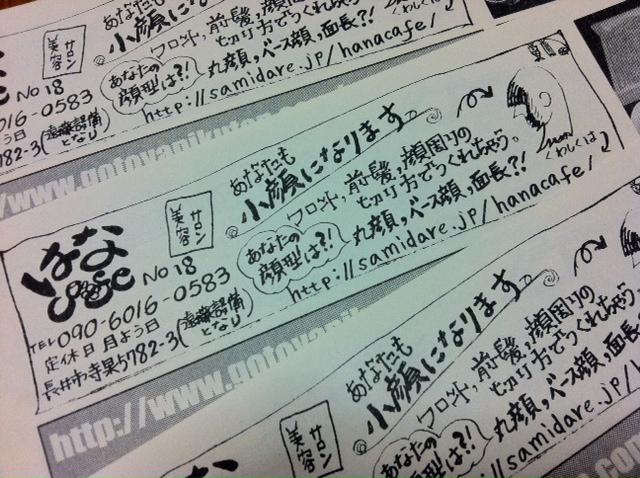 サロン
美容
No 18
016-0583
う日
782-3(遠藤設備となし)
あなたも
小顔になります
フロント,前髪,顔周りの
切り方でつくれちゃう。
あなたの
顔型は?!
丸顔,ベース顔,面長?!
http://samidare.jp/hanacafe/
くわしくは
//www.gotoyanikuten.com
はな
cafe
No 18
サロン
美容
TEL 090-6016-0583
定休日 月よう日
長井市寺泉5782-3(遠藤設備となり)
あなたも
小顔になります
フロント,前髪,顔周りの
切り方でつくれちゃう。
あなたの
顔型は?!
丸顔,ベース顔,面長?!
http://samidare.jp/hanacafe/
くわしくは
http://www.gotoyanik
サロン
美容
あなたも
小顔になります
フロント,前髪,顔周りの
切り方でつくれちゃう
あなたの
顔型は?!
丸顔,ベース顔,面長?!
://samidare.jp/hana